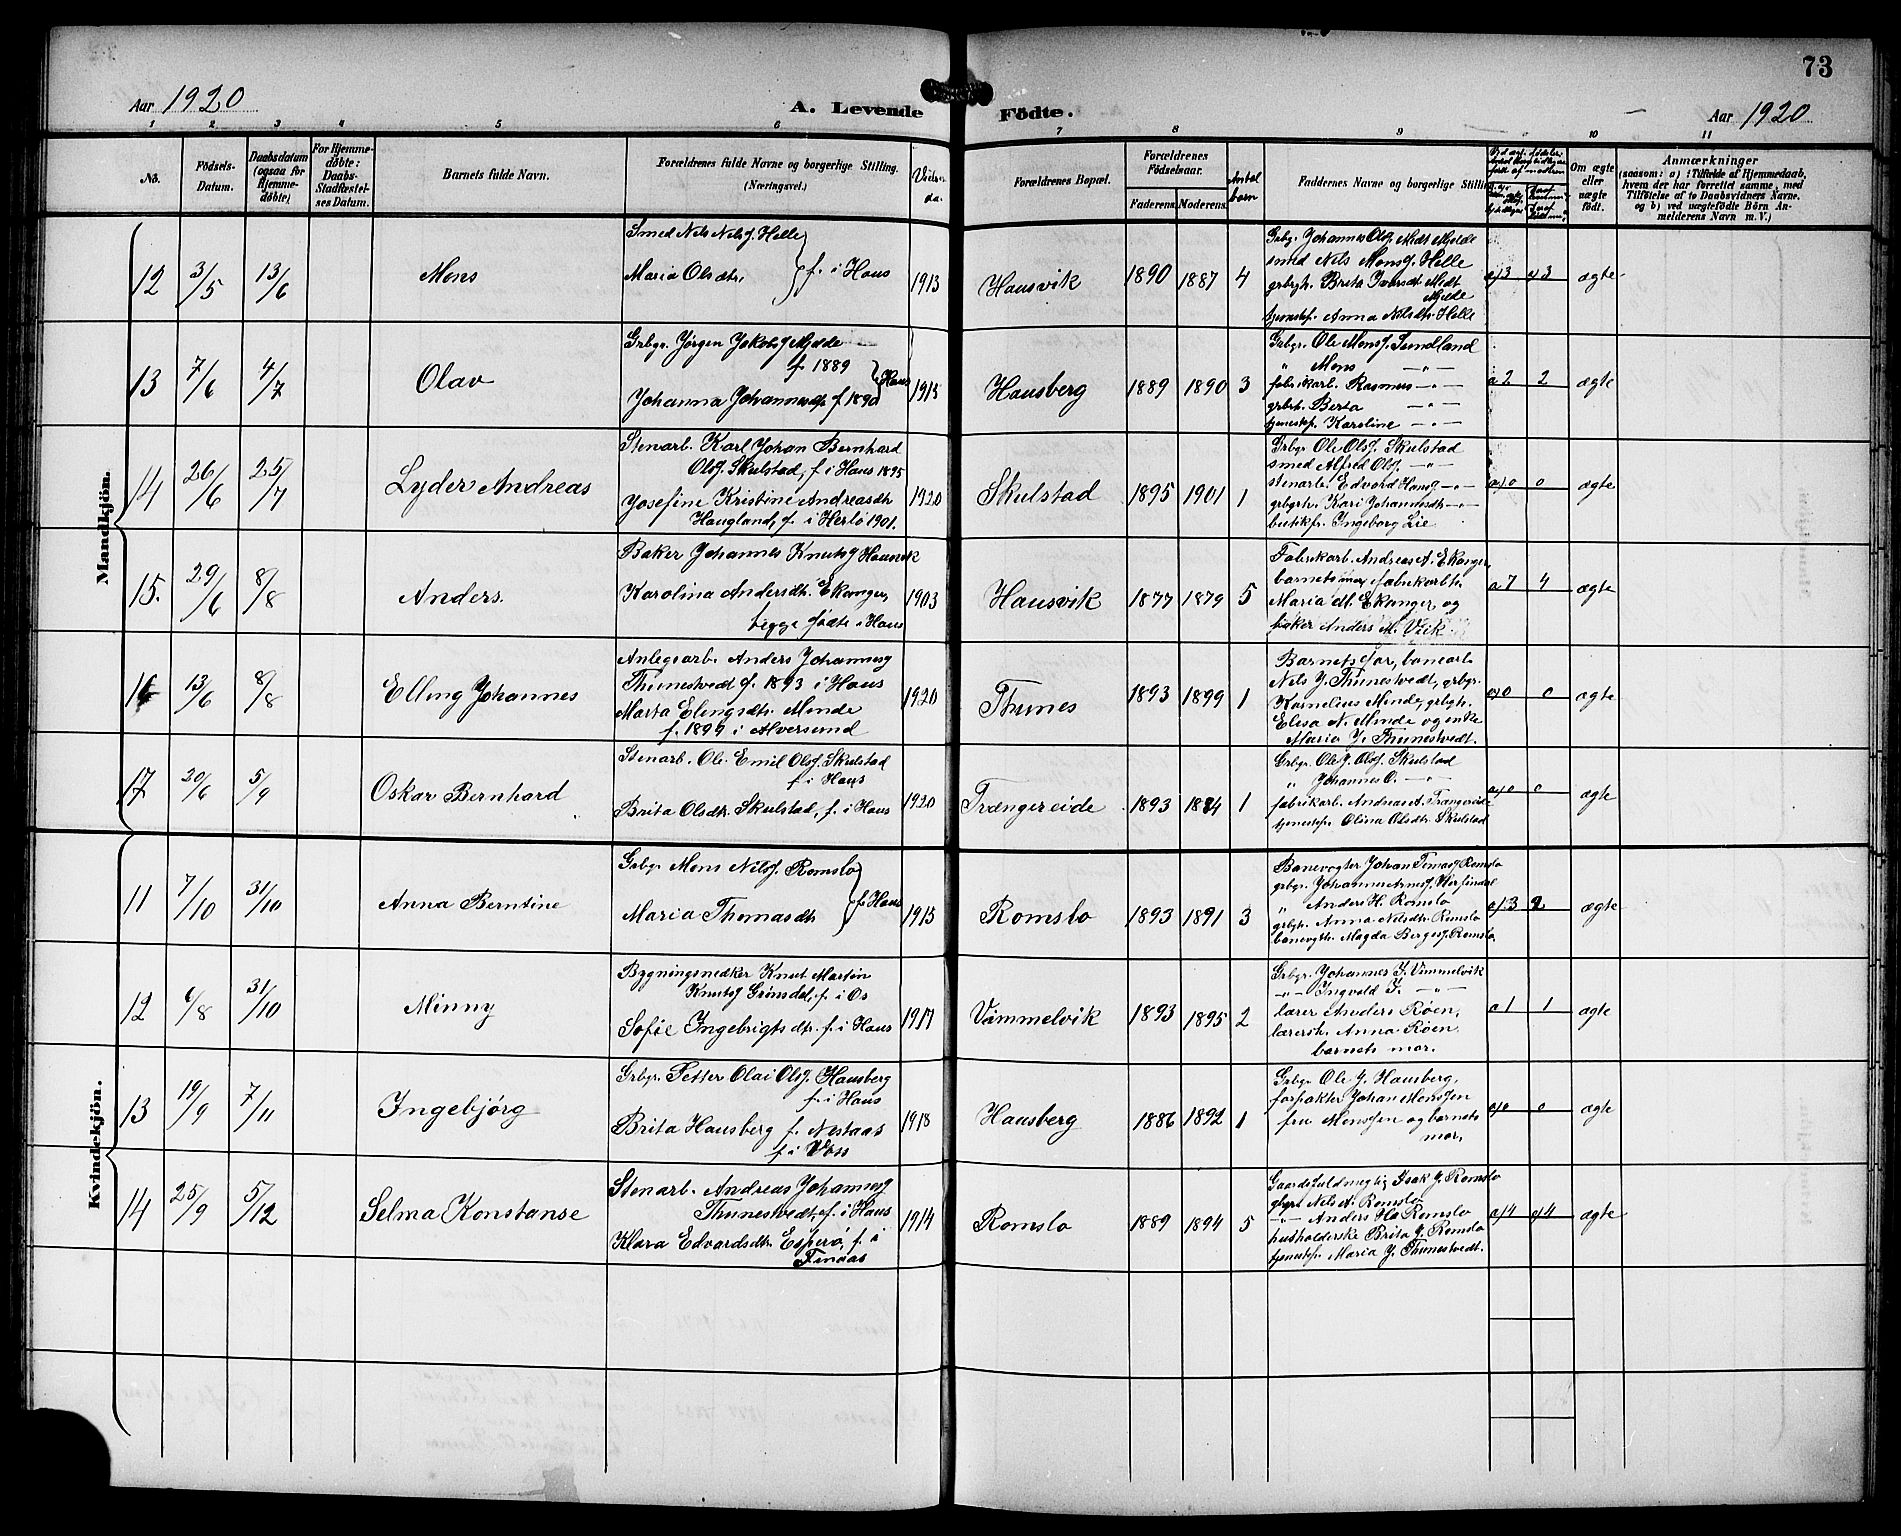 73
Aar 1920
A. Levende Fødte.
Aar 1920
1 2 3 4 5 6 7 8 9 10 11
No.
Fødsels-
Datum.
Daabsdatum
(ogsaa for
Hjemme-
døbte)
For Hjemme-
døbte:
Daabs-
Stadfæstel-
ses Datum.
Barnets fulde Navn.
Forældrenes fulde Navne og borgerlige Stilling.
(Næringsvei.)
Forældrenes Bopæl.
Forældrenes
Fødselsaar.
Faderens. Moderens.
Antal
børn
Faddernes Navne og borgerlige Stilling
Om ægte
eller
uægte
født.
Anmærkninger
(saasom: a) i Tilfælde af Hjemmedaab,
hvem der har forrettet samme, med
Tilføielse af to Daabsvidners Navne.
og b) ved uægtefødte Børn An-
melderens Navn m. V.)
Mandkjön.
12 3/5 13/6 Mons
Smed Nils Nilsg. Helle
Maria Olsdtr. f. i Haus
1913 Hausvik 1890 1887 4
Grbgr. Johannes Olsg. Midt Mjelde
smed Nils Monsg. Helle
grbgh. Brita Ivarsdt. Midt
Mjelde
tjenestep. Anna Nilsdtr. Helle
a/3 a/3 ægte
13 7/6 4/7 Olav
Grbgr. Jørgen Jakobsg Mjelde
f 1889
Johanna Johannesdtr f 1890 Haus
1915 Hausberg 1889 1890 3
Grbgr. Ole Monsg. Sundland
" Mons — " —
fabrikarb. Rasmus — " —
grbrh. Berta — " —
tjenestep. Karoline — " —
a 2 2 ægte
14 26/6 25/7 Lyder Andreas
Stenarb. Karl Johan Bernhard
Olsg. Skulstad, f. i Haus 1895
Josefine Kristine Andreasdtr
Haugland, f. i Herlö 1901.
1920 Skulstad 1895 1901 1
Grbgr Ole Olsg. Skulstad
smed Alfred Olsg. — " —
stenarb. Edvard Hansg — " —
grbgrh. Kari Johannesdtr — " —
butikfr. Ingeborg Lie
a/0 0 ægte
15. 29/6 8/8 Anders.
Baker Johannes Knutsg Hausvik
Karolina Andersdtr. Ekanger,
begge födte i Haus
1903 Hausvik 1877 1879 5
Fabrikarb. Andreas A. Ekanger,
barnets mor, fabrikarbh.
Maria M. Ekanger og
baker Anders M. Veik
a 7 4 ægte
16 13/6 8/8 Elling Johannes
Anlegsarb. Anders Johannesg
Thunestvedt f. 1893 i Haus
Marta Elingsdtr. Minde
f. 1899 i Alversund
1920 Thunes 1893 1899 1
Barnets far, banearb.
Nils J. Thunestvedt, grbgr.
Kornelius Minde, grbgh.
Elisa N. Minde og enke
Maria J. Thunestvedt.
a/0 0 ægte
17 20/6 5/9 Oskar Bernhard
Stenarb. Ole Emil Olsg. Skulstad
f. i Haus
Brita Olsdtr. Skulstad, f. i Haus
1920 Trængereide 1893 1884 1
Grbgr. Ole J. Olsg. Skulstad
" Johannes O. — " —
fabrikarb. Andreas A. Trængereide
tjenestep. Olina Olsdtr. Skulstad
a/0 0 ægte
Kvindekjön.
11 7/10 31/10 Anna Berntine
Grbgr. Mons Nilsg. Romslo
Maria Thomasdtr f. i Haus
1915 Romslo 1893 1891 3
Banevogter Johan Tomasg Romslo
grbgr. Johannes Arnesg. Herfindal
" Anders H. Romslo
grbgh. Anna Nilsdtr. Romslo
banevgth. Magda Bergesg. Romslo
a/3 2 ægte
12 6/8 31/10 Minny
Bygningsnedker Knut Martin
Knutsg Grønsdal, f. i Os
Sofie Ingebrigtsdtr. f. i Haus
1917 Vimmelvik 1893 1895 2
Grbgr. Johannes I. Vimmelvik
— " — Ingvald I. — " —
lærer Anders Røen,
lærersh. Anna Røen
barnets mor.
a 1 1 ægte
13 19/9 7/11 Ingebjörg
Grbgr. Petter Olai Olsg. Hausberg
f. i Haus
Brita Hausberg f. Nestaas
f. i Voss
1918 Hausberg 1886 1892 1
Grbgr Ole J. Hausberg,
forpakter Johan Monssen
fru Monssen og barnets
mor,
a/0 0 ægte
14 25/9 5/12 Selma Konstanse
Stenarb. Andreas Johannesg
Thunestvedt, f. i Haus
Klara Edvardsdtr. Esperö, f. i
Finaas
1914 Romslo 1889 1894 5
Gaardsfuldmegtig Isak J. Romslo
gbgr Nils A. Romslo
— " — Anders H. Romslo
husholderske Brita J. Romslo
tjenestep. Maria J. Thunestvedt.
a/4 a/4 ægte